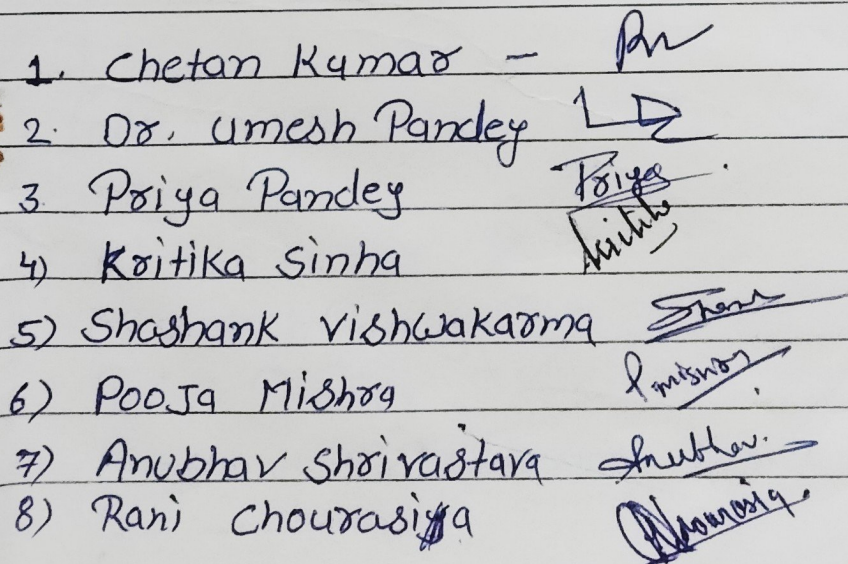 1. Chetan Kumar -
2. Dr. Umesh Pandey
3. Priya Pandey Priya
4) Kritika Sinha
5) Shashank Vishwakarma
6) Pooja Mishra P mishra
7) Anubhav Shrivastava Anubhav.
8) Rani Chourasiya